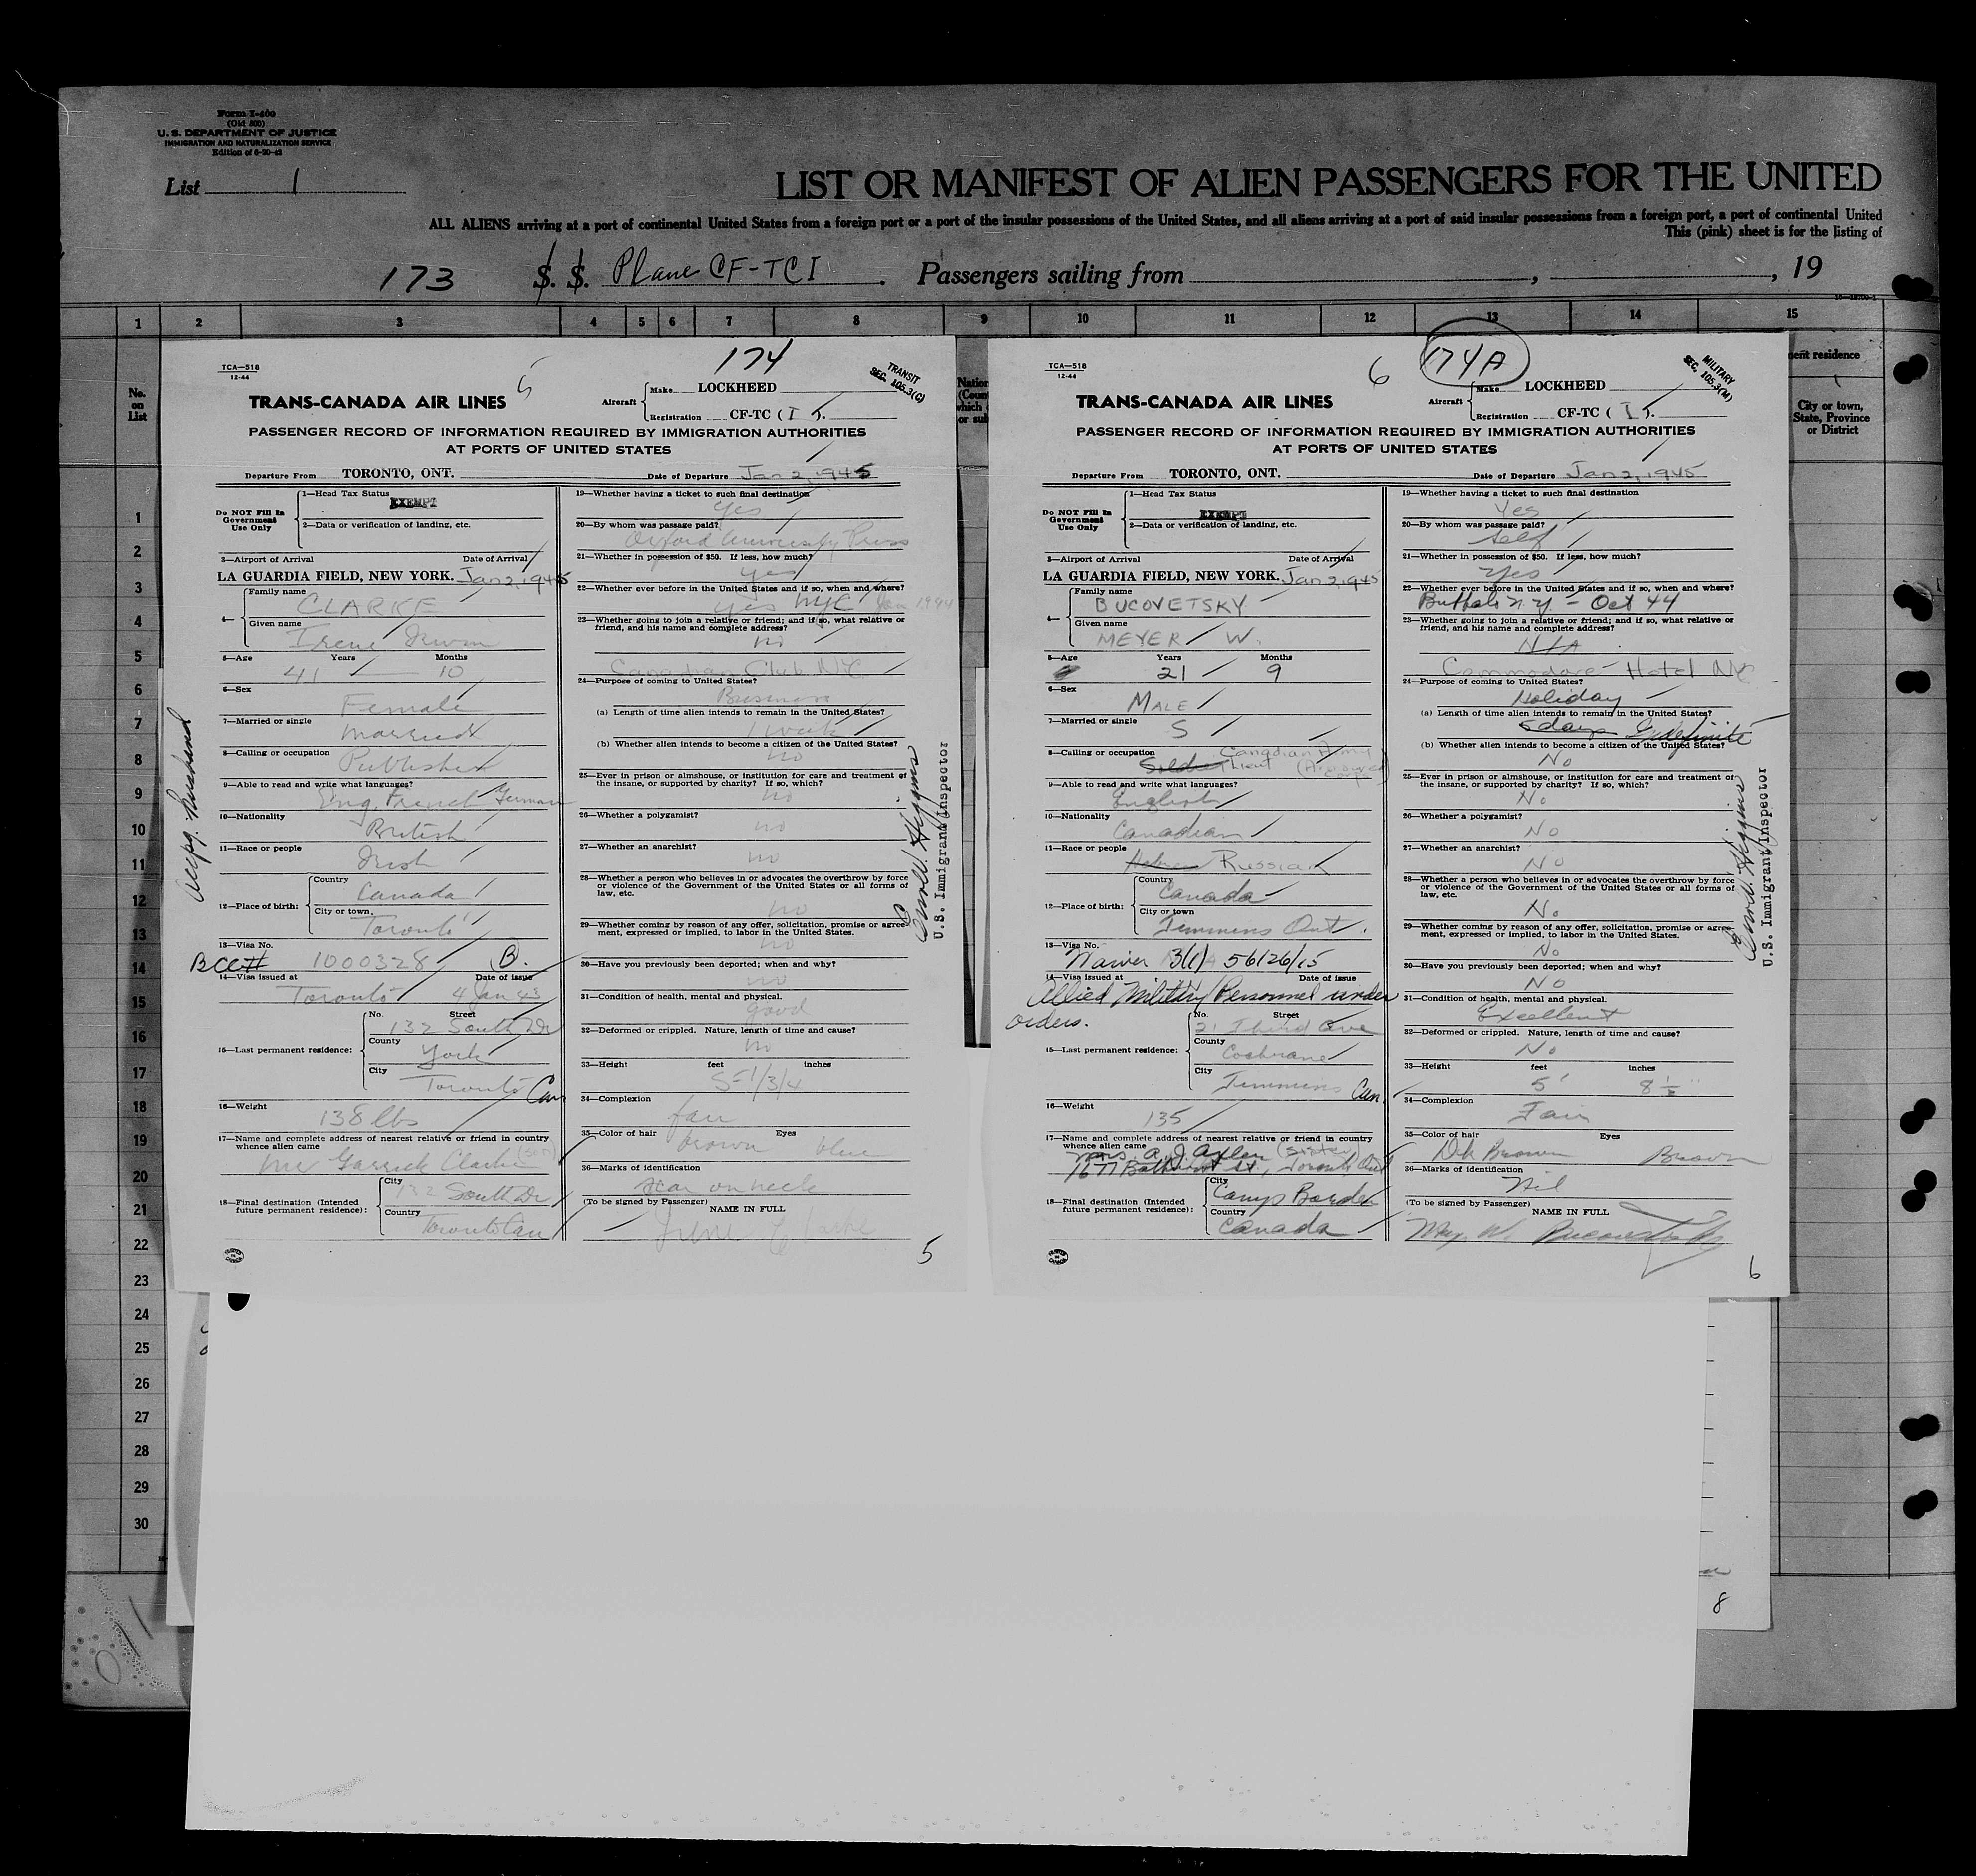 Form I-460
(Old 500)
U. S. DEPARTMENT OF JUSTICE
IMMIGRATION AND NATURALIZATION SERVICE
Edition of 6-20-42
List 1
LIST OR MANIFEST OF ALIEN PASSENGERS FOR THE UNITED
ALL ALIENS arriving at a port of continental United States from a foreign port or a port of the insular possessions of the United States, and all aliens arriving at a port of said insular possessions from a foreign port, a port of continental United
This (pink) sheet is for the listing of
173 S. S. Plane CF-TCI . Passengers sailing from , , 19
1 2 3 4 5 6 7 8 9 10 11 12 13 14 15
No. on List
ent residence
City or town, State, Province or District
1
2
3
4
5
6
7
8
9
10
11
12
13
14
15
16
17
18
19
20
21
22
23
24
25
26
27
28
29
30
TCA—518
12-44
5
174
TRANSIT
SEC. 105.3(C)
TRANS-CANADA AIR LINES
Aircraft
Make LOCKHEED
Registration CF-TC ( I ).
PASSENGER RECORD OF INFORMATION REQUIRED BY IMMIGRATION AUTHORITIES
AT PORTS OF UNITED STATES
Departure From TORONTO, ONT. Date of Departure Jan 2, 1945
Do NOT Fill In Government Use Only
1—Head Tax Status
EXEMPT
2—Data or verification of landing, etc.
3—Airport of Arrival Date of Arrival
LA GUARDIA FIELD, NEW YORK. Jan 2, 1945
4—
Family name
CLARKE
Given name
Irene Irwin
5—Age Years Months
41 10
6—Sex
Female
7—Married or single
Married
8—Calling or occupation
Publisher
9—Able to read and write what languages?
Eng. French German
10—Nationality
British
11—Race or people
Irish
12—Place of birth:
Country
Canada
City or town
Toronto
13—Visa No.
BCC# 1000328 B.
14—Visa issued at Date of issue
Toronto 4 Jan 43
15—Last permanent residence:
No. Street
132 South Dr
County
York
City
Toronto Can
16—Weight
138 lbs
17—Name and complete address of nearest relative or friend in country
whence alien came
Mr Garrick Clarke (son)
18—Final destination (Intended
future permanent residence):
City
132 South Dr
Country
Toronto Can
19—Whether having a ticket to such final destination
Yes
20—By whom was passage paid?
Oxford University Press
21—Whether in possession of $50. If less, how much?
yes
22—Whether ever before in the United States and if so, when and where?
yes NYC Jan 1944
23—Whether going to join a relative or friend; and if so, what relative or
friend, and his name and complete address?
no
Canadian Club NYC
24—Purpose of coming to United States?
Business
(a) Length of time alien intends to remain in the United States?
1 week
(b) Whether alien intends to become a citizen of the United States?
no
25—Ever in prison or almshouse, or institution for care and treatment of
the insane, or supported by charity? If so, which?
no
26—Whether a polygamist?
no
27—Whether an anarchist?
no
28—Whether a person who believes in or advocates the overthrow by force
or violence of the Government of the United States or all forms of
law, etc.
no
29—Whether coming by reason of any offer, solicitation, promise or agree-
ment, expressed or implied, to labor in the United States.
no
30—Have you previously been deported; when and why?
no
31—Condition of health, mental and physical.
good
32—Deformed or crippled. Nature, length of time and cause?
no
33—Height feet inches
5-1/3/4
34—Complexion
fair
35—Color of hair Eyes
brown blue
36—Marks of identification
scar on neck
(To be signed by Passenger) NAME IN FULL
Irene Clarke
5
U.S. Immigrant Inspector
TCA—518
12-44
6
174A
MILITARY
SEC. 105.3(M)
TRANS-CANADA AIR LINES
Aircraft
Make LOCKHEED
Registration CF-TC ( I ).
PASSENGER RECORD OF INFORMATION REQUIRED BY IMMIGRATION AUTHORITIES
AT PORTS OF UNITED STATES
Departure From TORONTO, ONT. Date of Departure Jan 2, 1945
Do NOT Fill In Government Use Only
1—Head Tax Status
EXEMPT
2—Data or verification of landing, etc.
3—Airport of Arrival Date of Arrival
LA GUARDIA FIELD, NEW YORK. Jan 2, 1945
4—
Family name
BUCOVETSKY
Given name
MEYER W.
5—Age Years Months
21 9
6—Sex
MALE
7—Married or single
S
8—Calling or occupation
Canadian Army
Soldier Lieut (Armoured Corps)
9—Able to read and write what languages?
English
10—Nationality
Canadian
11—Race or people
Hebrew Russian
12—Place of birth:
Country
Canada
City or town
Timmins Ont.
13—Visa No.
Waiver 3(1) 56126/15
14—Visa issued at Date of issue
Allied Military Personnel under
orders.
15—Last permanent residence:
No. Street
21 Third Ave
County
Cochrane
City
Timmins Can.
16—Weight
135
17—Name and complete address of nearest relative or friend in country
whence alien came
Mrs. A. J. Axler (Sister)
1677 Bathurst St., Toronto Ont
18—Final destination (Intended
future permanent residence):
City
Camp Borden
Country
Canada
19—Whether having a ticket to such final destination
Yes
20—By whom was passage paid?
Self
21—Whether in possession of $50. If less, how much?
Yes
22—Whether ever before in the United States and if so, when and where?
Buffalo N.Y - Oct 44
23—Whether going to join a relative or friend; and if so, what relative or
friend, and his name and complete address?
N/A
Commodore Hotel NYC
24—Purpose of coming to United States?
Holiday
(a) Length of time alien intends to remain in the United States?
5 days Indefinite
(b) Whether alien intends to become a citizen of the United States?
No
25—Ever in prison or almshouse, or institution for care and treatment of
the insane, or supported by charity? If so, which?
No
26—Whether a polygamist?
No
27—Whether an anarchist?
No
28—Whether a person who believes in or advocates the overthrow by force
or violence of the Government of the United States or all forms of
law, etc.
No
29—Whether coming by reason of any offer, solicitation, promise or agree-
ment, expressed or implied, to labor in the United States.
No
30—Have you previously been deported; when and why?
No
31—Condition of health, mental and physical.
Excellent
32—Deformed or crippled. Nature, length of time and cause?
No
33—Height feet inches
5' 8 ½"
34—Complexion
Fair
35—Color of hair Eyes
Dk Brown Brown
36—Marks of identification
Nil
(To be signed by Passenger) NAME IN FULL
W. Bucovetsky
6
U.S. Immigrant Inspector
8